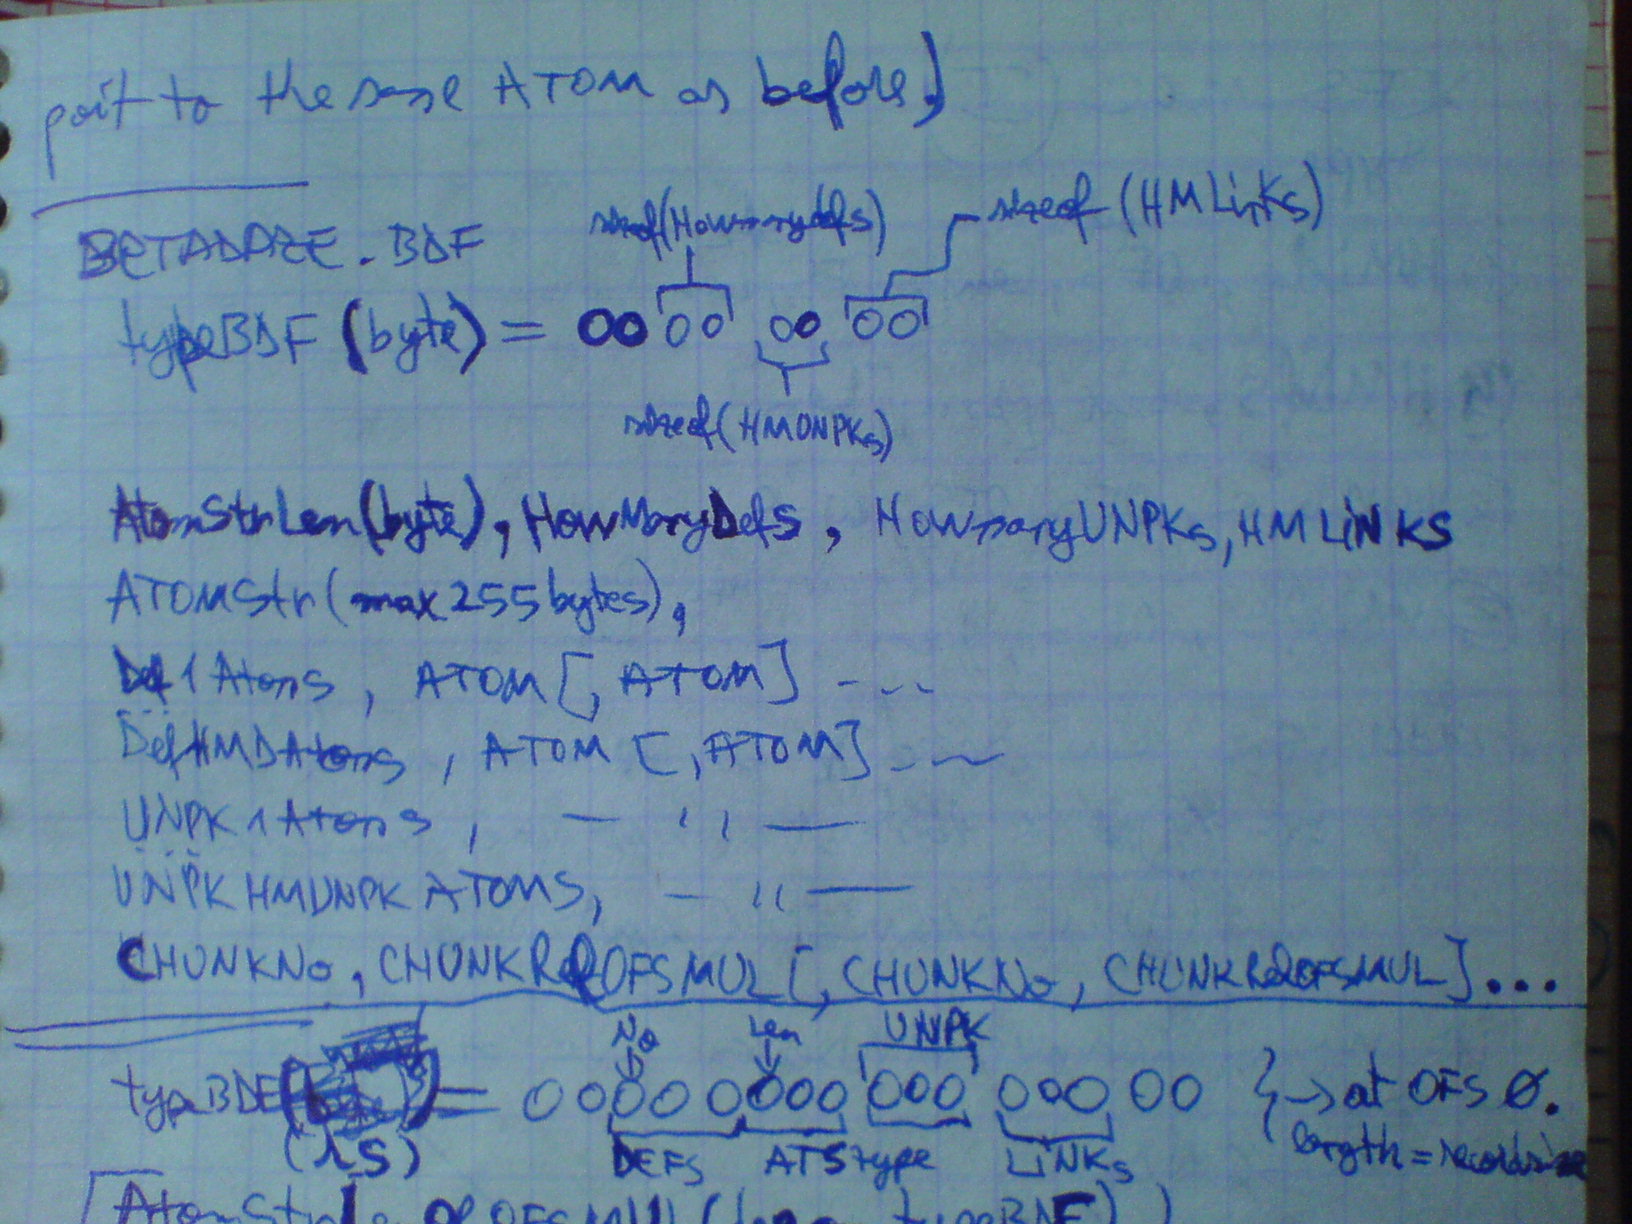 point to the same ATOM as before)
BETADAZE.BDF
sizeof(Howmanydefs) sizeof(HMLinks)
typeBDF (byte) = 00 00 00 00
sizeof(HMUNPKs)
AtomStrLen(byte), HowManyDefs, HowmanyUNPKs, HMLiNKS
ATOMStr(max 255 bytes),
Def1Atoms, ATOM[, ATOM] ...
DefHMDAtoms, ATOM [, ATOM] ...
UNPK1Atoms, — ,, —
UNPKHMUNPKATOMS, — ,, —
CHUNKNo, CHUNKRROFSMUL[, CHUNKNo, CHUNKRROFSMUL]...
No Len UNPK
typeBDF = 00 000 000 000 000 00 } → at OFS Ø.
DEFS ATStype LiNKs length = recordsize